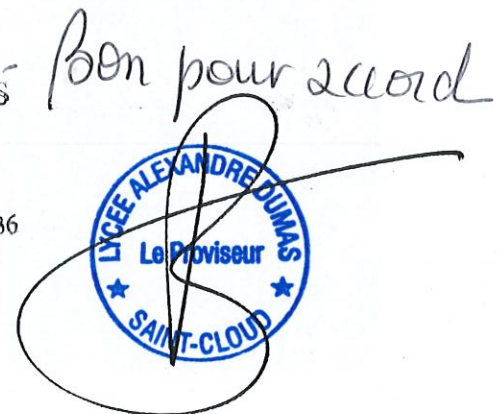 S Bon pour accord
LYCEE ALEXANDRE DUMAS
36
Le Proviseur
★ SAINT-CLOUD ★